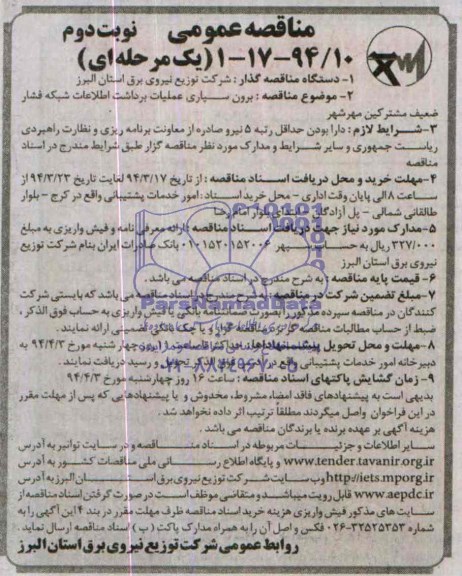 مناقصه عمومی نوبت دوم
۱-۱۷-۹۴/۱۰ (یک مرحله ای)
۱- دستگاه مناقصه گذار : شرکت توزیع نیروی برق استان البرز
۲- موضوع مناقصه : برون سپاری عملیات برداشت اطلاعات شبکه فشار
ضعیف مشترکین مهرشهر
۳-شرایط لازم : دارا بودن حداقل رتبه ۵ نیرو صادره از معاونت برنامه ریزی و نظارت راهبردی
ریاست جمهوری و سایر شرایط و مدارک مورد نظر مناقصه گزار طبق شرایط مندرج در اسناد
مناقصه
۴-مهلت خرید و محل دریافت اسناد مناقصه : از تاریخ ۹۴/۳/۱۷ لغایت تاریخ ۹۴/۳/۲۳ از
ساعت ۸ الی پایان وقت اداری - محل خرید اسناد : امور خدمات پشتیبانی واقع در کرج - بلوار
طالقانی شمالی - پل آزادگان - ابتدای بلوار امام رضا
۵-مدارک مورد نیاز جهت دریافت اسناد مناقصه : ارائه معرفی نامه و فیش واریزی به مبلغ
۳۲۷/۰۰۰ ریال به حساب سپهر ۰۱۰۱۵۲۰۱۵۲۰۰۶ بانک صادرات ایران بنام شرکت توزیع
نیروی برق استان البرز
۶- قیمت پایه مناقصه : به شرح مندرج در اسناد مناقصه می باشد .
۷-مبلغ تضمین شرکت در مناقصه : به شرح مندرج در اسناد مناقصه می باشد که بایستی شرکت
کنندگان در مناقصه سپرده مذکور را بصورت ضمانتنامه بانکی یا فیش واریزی به حساب فوق الذکر ،
ضبط از حساب مطالبات مناقصه گر نزد مناقصه گزار و یا چک بانکی تضمینی ارائه نمایند .
۸-مهلت و محل تحویل پیشنهادها : حداکثر تا ساعت ۱۱ روز چهار شنبه مورخ ۹۴/۴/۳ به
دبیرخانه امور خدمات پشتیبانی واقع در آدرس فوق الذکر تحویل و رسید دریافت نمایند .
۹- زمان گشایش پاکتهای اسناد مناقصه : ساعت ۱۶ روز چهارشنبه مورخ ۹۴/۴/۳
بدیهی است به پیشنهادهای فاقد امضاء مشروط، مخدوش و یا پیشنهادهایی که پس از مهلت مقرر
در این فراخوان واصل میگردند مطلقاً ترتیب اثر داده نخواهد شد .
هزینه آگهی بر عهده برنده یا برندگان مناقصه می باشد .
سایر اطلاعات و جزئیات مربوطه در اسناد مناقصه و در سایت توانیر به آدرس
www.tender.tavanir.org.ir و پایگاه اطلاع رسانی ملی مناقصات کشور به آدرس
http://iets.mporg.ir و وب سایت شرکت توزیع نیروی برق استان البرز به آدرس
www.aepdc.ir قابل رویت میباشد و متقاضی موظف است در صورت گرفتن اسناد مناقصه از
سایت های مذکور فیش واریزی هزینه خرید اسناد مناقصه ظرف مهلت مقرر در بند ۴ این آگهی را به
شماره ۳۲۵۲۵۳۵۳-۰۲۶ فکس و اصل آن را به همراه مدارک پاکت ( ب ) اسناد مناقصه ارسال نماید .
روابط عمومی شرکت توزیع نیروی برق استان البرز
ParsNamadData